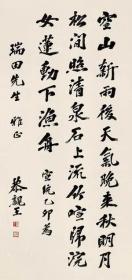 空山新雨後天氣晚來秋明月
松間照清泉石上流竹喧歸浣
女蓮動下漁舟 宣統乙卯為
瑞田先生 雅正
恭親王